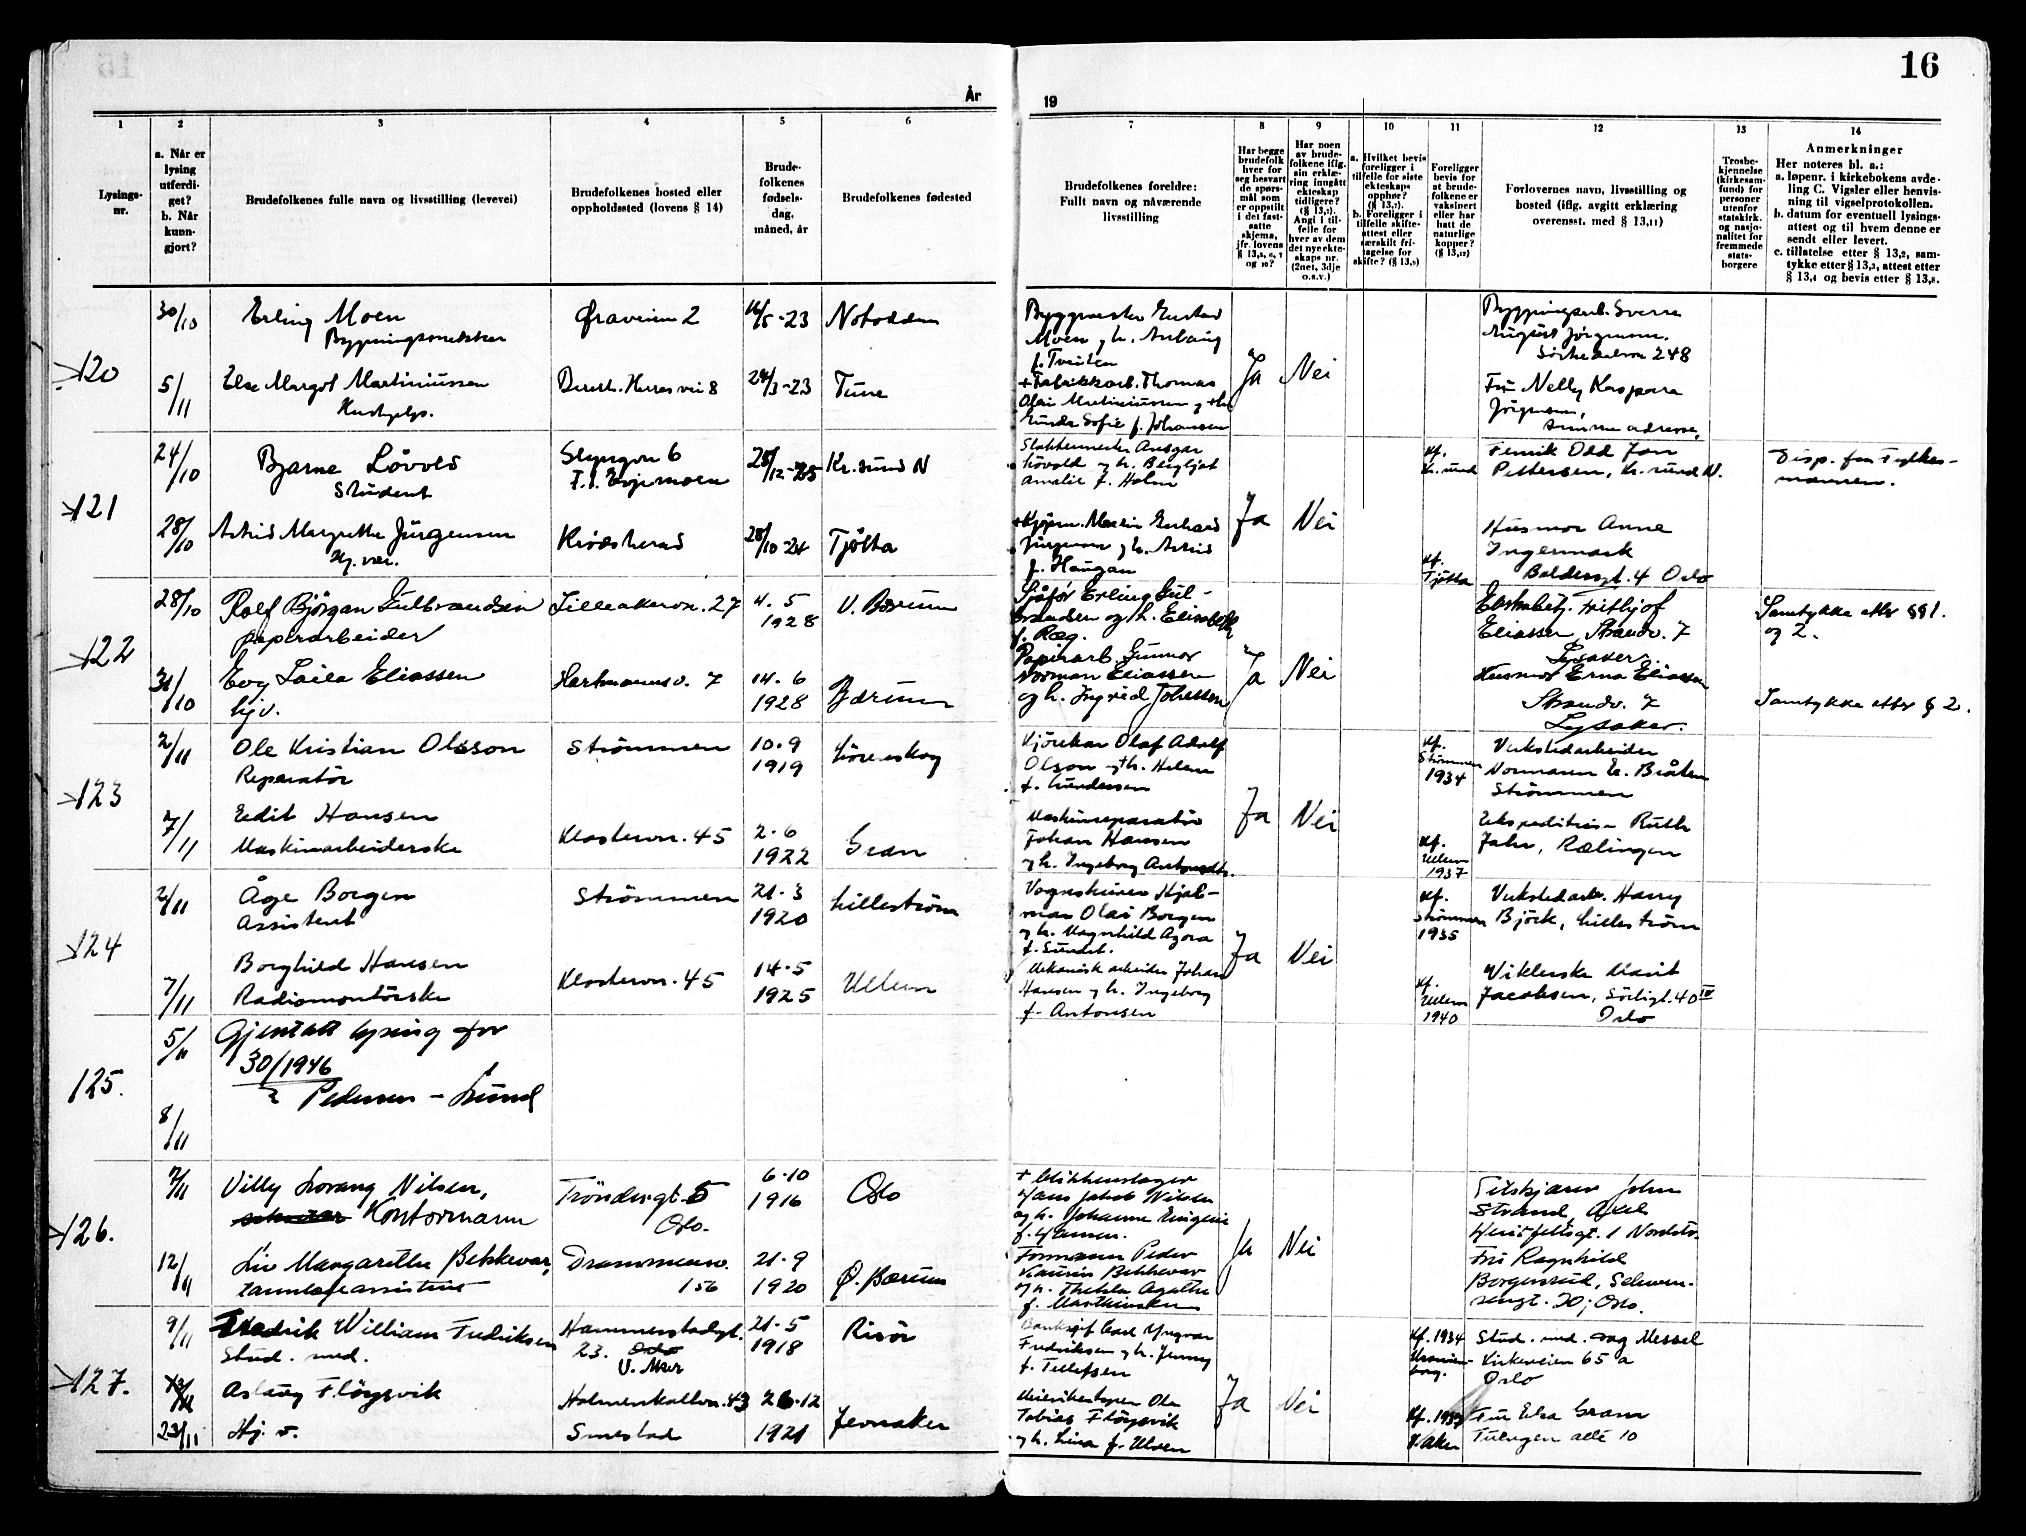 16
År
19
1
2
3
4
5
6
7
8
9
10
11
12
13
14
Lysings-
nr.
a. Når er
lysing
utferdi-
get?
b. Når
kunn-
gjort?
Brudefolkenes fulle navn og livsstilling (levevei)
Brudefolkenes bosted eller
oppholdssted (lovens § 14)
Brude-
folkenes
fødsels-
dag,
måned, år
Brudefolkenes fødested
Brudefolkenes foreldre:
Fullt navn og nåværende
livsstilling
Har begge
brudefolk
hver for
seg besvart
de spørs-
mål som
er oppstilt
i det fast-
satte
skjema,
jfr. lovens
§ 13,5, 6, 7
og 10?
Har noen
av brude-
folkene iflg.
sin erklæ-
ring inngått
ekteskap
tidligere?
(§ 13,7).
Angi i til-
felle for
hver av dem
det nye ekte-
skaps nr.
(2net, 3dje
o.s.v.)
a. Hvilket bevis
foreligger i
tilfelle for siste
ekteskaps
opphør?
(§ 13,7).
b. Foreligger i
tilfelle skifte-
attest eller
særskilt fri-
tagelse for
skifte? (§ 13,9)
Foreligger
bevis for
at brude-
folkene er
vaksinert
eller har
hatt de
naturlige
kopper?
(§ 13,12)
Forlovernes navn, livsstilling og
bosted (iflg. avgitt erklæring
overensst. med § 13,11)
Trosbe-
kjennelse
(kirkesam-
fund) for
personer
utenfor
statskirk.
og nasjo-
nalitet for
fremmede
stats-
borgere
Anmerkninger
Her noteres bl. a.:
a. løpenr. i kirkebokens avde-
ling C. Vigsler eller henvis-
ning til vigselprotokollen.
b. datum for eventuell lysings-
attest og til hvem denne er
sendt eller levert.
c. tillatelse etter § 13,2, sam-
tykke etter § 13,3, attest etter
§ 13,4 og bevis etter § 13,8.
120
30/10
Erling Moen
Bygningssnekker
Øraveien 2
16/5-23
Notodden
Moen g h.
f. Tveiten
Ja
Nei
Bygningsarb. Sverre
August Jørgensen,
248
5/11
Else Margot Martiniussen
Hushjelp.
24/3-23
Tune
+ Fabrikkarb. Thomas
Olai Martiniussen g +h.
Gunda Sofie f. Johansen
Fru Nelly Kaspara
Jörgensen,
samme adresse,
121
24/10
Bjarne Lövold
Student
Slyngvn 6
28/12-25
Kr.sund N
Slaktermester Ansgar
Lövold g h. Bergljot
Amalie f. Holm
Ja
Nei
kf.
Kr.sund
Fenrik Odd Jan
Pettersen, Kr.sund N.
Disp. fra Fylkes-
mannen.
28/10
Astrid Margrethe Jürgensen
Hj. vær.
Krødsherad
28/10-24
Tjötta
Jürgensen g h. Astrid
f. Haugan
kf.
Tjøtta
Husmor Anne
Ingermark
Baldersgt. 4 Oslo
122
28/10
Rolf Bjørgan Gulbrandsen
papirarbeider
Lilleakervn. 27
4. 5
1928
V. Bærum
Sjåfør Erling Gul-
brandsen og h. Elisabeth
f. Ræg.
Ja
Nei
Fritjof
Eliassen, Strandv. 7
Lysaker.
Samtykke etter §§ 1.
og 2.
31/10
Evy Laila Eliassen
hjv.
Hartmannsv. 7
14. 6
1928
Bærum
Papirarb. Gunnar
Norman Eliassen
og h. Ingrid Johessen
Husmor Erna Eliassen
Strandv. 7
Lysaker.
Samtykke etter § 2.
123
2/11
Ole Kristian Olsson
Reparatör
Strömmen
10.9
1919
Lörenskog
Kjörekar Olaf Adolf
Olsson g +h. Helene
f. Gundersen
Ja
Nei
kf.
Strömmen
1934
Verkstedarbeider
Normann E. Bråten
Strömmen
7/11
Edit Hansen
Maskinarbeiderske
Klostervn. 45
2.6
1922
Gran
Maskinreparatör
Johan Hansen
g h. Ingeborg Antonsdtr.
kf.
Ullern
1937
Ekspeditrise Ruth
Jahr, Rælingen
124
2/11
Åge Borgen
Assistent
Strömmen
21.3
1920
Lilleström
Vognskriver Hjal-
mar Olai Borgen
g h. Magnhild Agora
f. Sundet.
Ja
Nei
kf.
Strömmen
1935
Verkstedarb. Harry
Björk, Lilleström
7/11
Borghild Hansen
Radiomontörske
Klostervn. 45
14.5
1925
Ullern
Mekanisk arbeider Johan
Hansen g h. Ingeborg
f. Antonsen
kf.
Ullern
1940
Viklerske Marit
Jacobsen, Sörligt. 40 IV
Oslo
125.
5/11
Gjentatt lysing for
30/1946
Pedersen - Lund
8/11
126.
7/11
Villy Lorang Nilsen,
Kontormann
Tröndergt. 5
Oslo.
6.10
1916
Oslo
+ blikkenslager
Hans Jakob Nilsen
og h. Johanne Eugenie
f. Hansen.
Ja
Nei
Feltskjærer John
Strand, Axel
1 Nordstr.
12/11
Liv Margarethe Bekkevar,
tannlægeassistent
Drammensv.
156
21.9
1920
Ø. Bærum
Formann Peder
Laurin Bekkevar
og h. Thekla Agathe
f.
Fru Ragnhild
Borgersrud, Schwen-
sengt. 20, Oslo.
127.
9/11
Fredrik William Fredriksen
Stud. med.
Hammerstadgt.
23. Oslo
V. Aker
21.5
1918
Risör
Banksjef Carl Yngvar
Fredriksen g h. Jenny
f. Tellefsen
Ja
Nei
kf. 1934
Uranien-
borg.
Stud. med. Dag Messel
Kirkeveien 65 a
Oslo
13/11
23/11
Aslaug Flöysvik
Hj. v.
Holmenkollvn. 43
Smestad
26.12
1921
Jevnaker
Meieribestyrer Ole
Tobias Flöysvik
g h. Lina f. Ulven
kf. 1937
V. Aker
Fru Elsa Gram
Tuengen allé 10